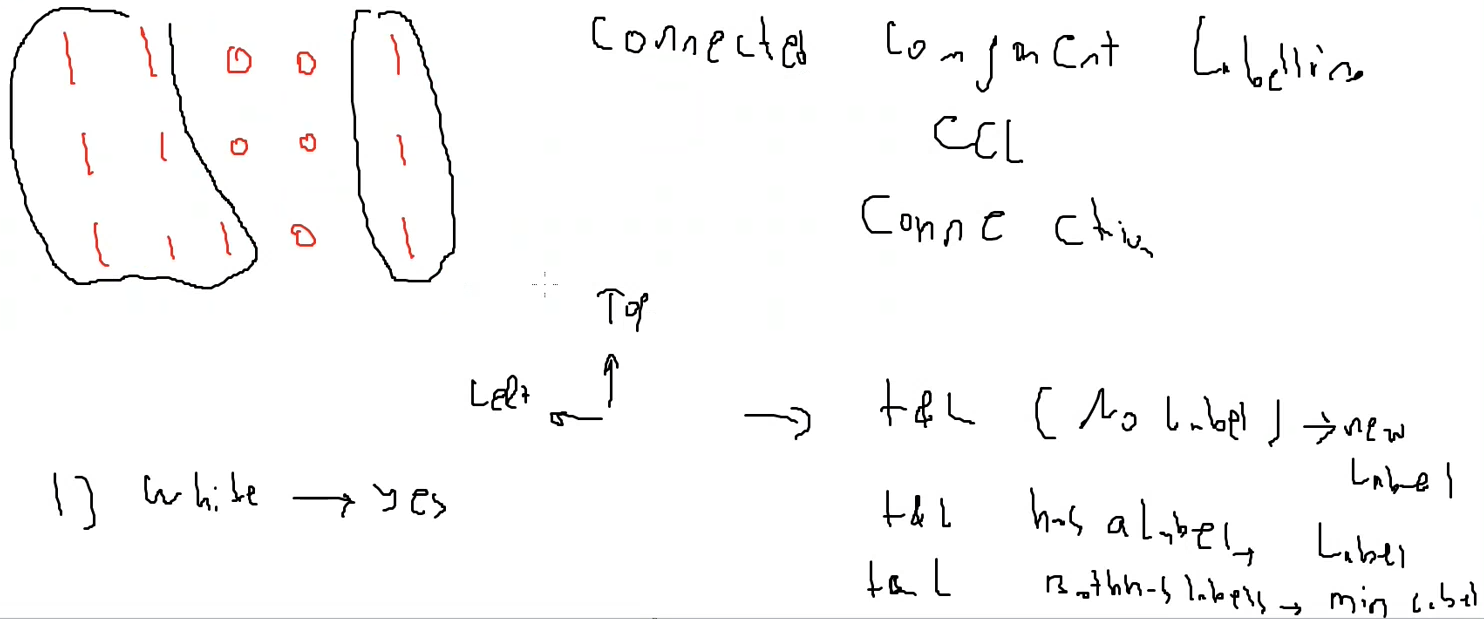 1 1 0 0 1
1 1 0 0 1
1 1 1 0 1
Connected Component Labelling
CCL
Connection
Top
Left
t&L (No Label) → new
Label
1) white → yes
t&L has a Label → Label
t&L Both has labels → min label